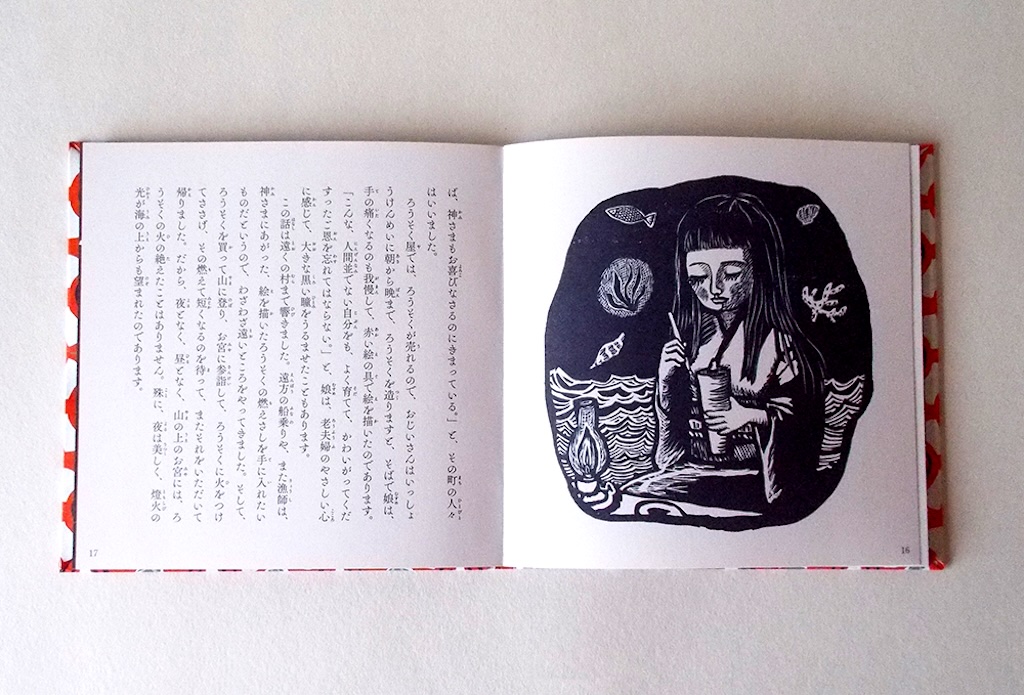 ば、神さまもお喜びなさるのにきまっている。」と、その町の人々
はいいました。
ろうそく屋では、ろうそくが売れるので、おじいさんはいっしょ
うけんめいに朝から晩まで、ろうそくを造りますと、そばで娘は、
手の痛くなるのも我慢して、赤い絵の具で絵を描いたのであります。
「こんな、人間並でない自分をも、よく育てて、かわいがってくだ
すったご恩を忘れてはならない。」と、娘は、老夫婦のやさしい心
に感じて、大きな黒い瞳をうるませたこともあります。
この話は遠くの村まで響きました。遠方の船乗りや、また漁師は、
神さまにあがった、絵を描いたろうそくの燃えさしを手に入れたい
ものだというので、わざわざ遠いところをやってきました。そして、
ろうそくを買って山に登り、お宮に参詣して、ろうそくに火をつけ
てささげ、その燃えて短くなるのを待って、またそれをいただいて
帰りました。だから、夜となく、昼となく、山の上のお宮には、ろ
うそくの火の絶えたことはありません。殊に、夜は美しく、燈火の
光が海の上からも望まれたのであります。
17
16